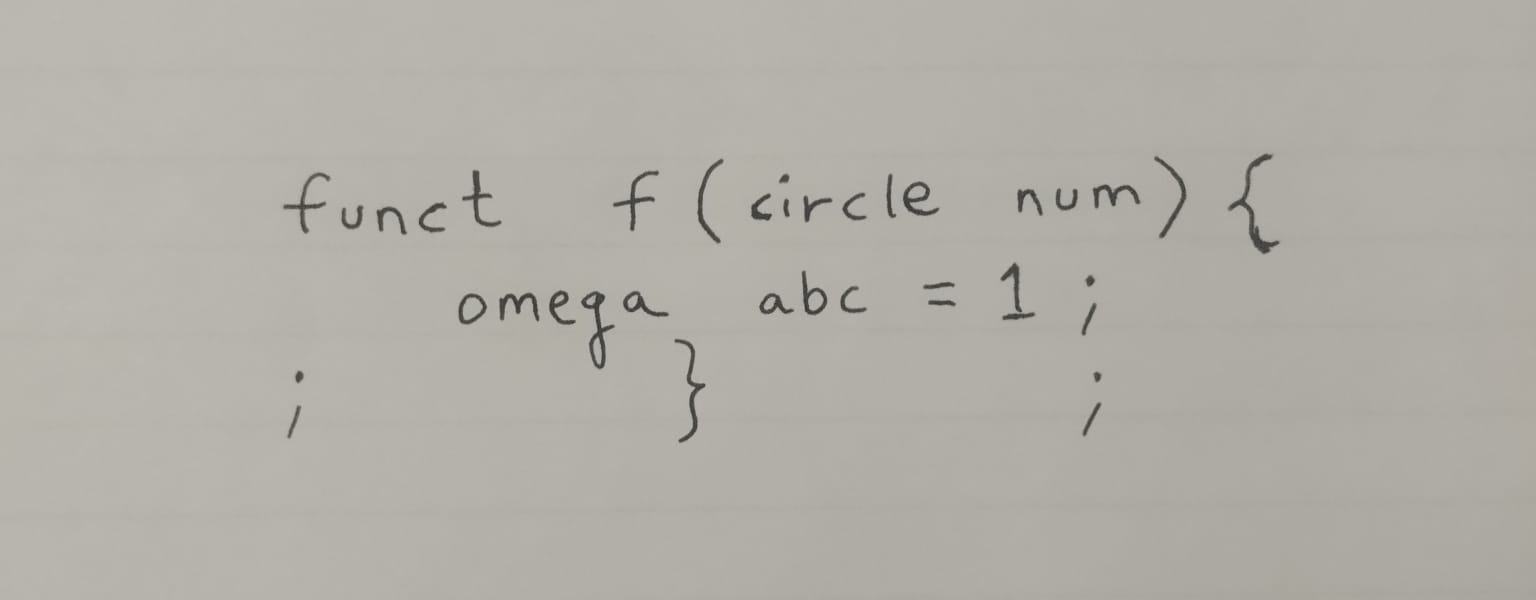 funct f (circle num) {
omega abc = 1 ;
; } ;